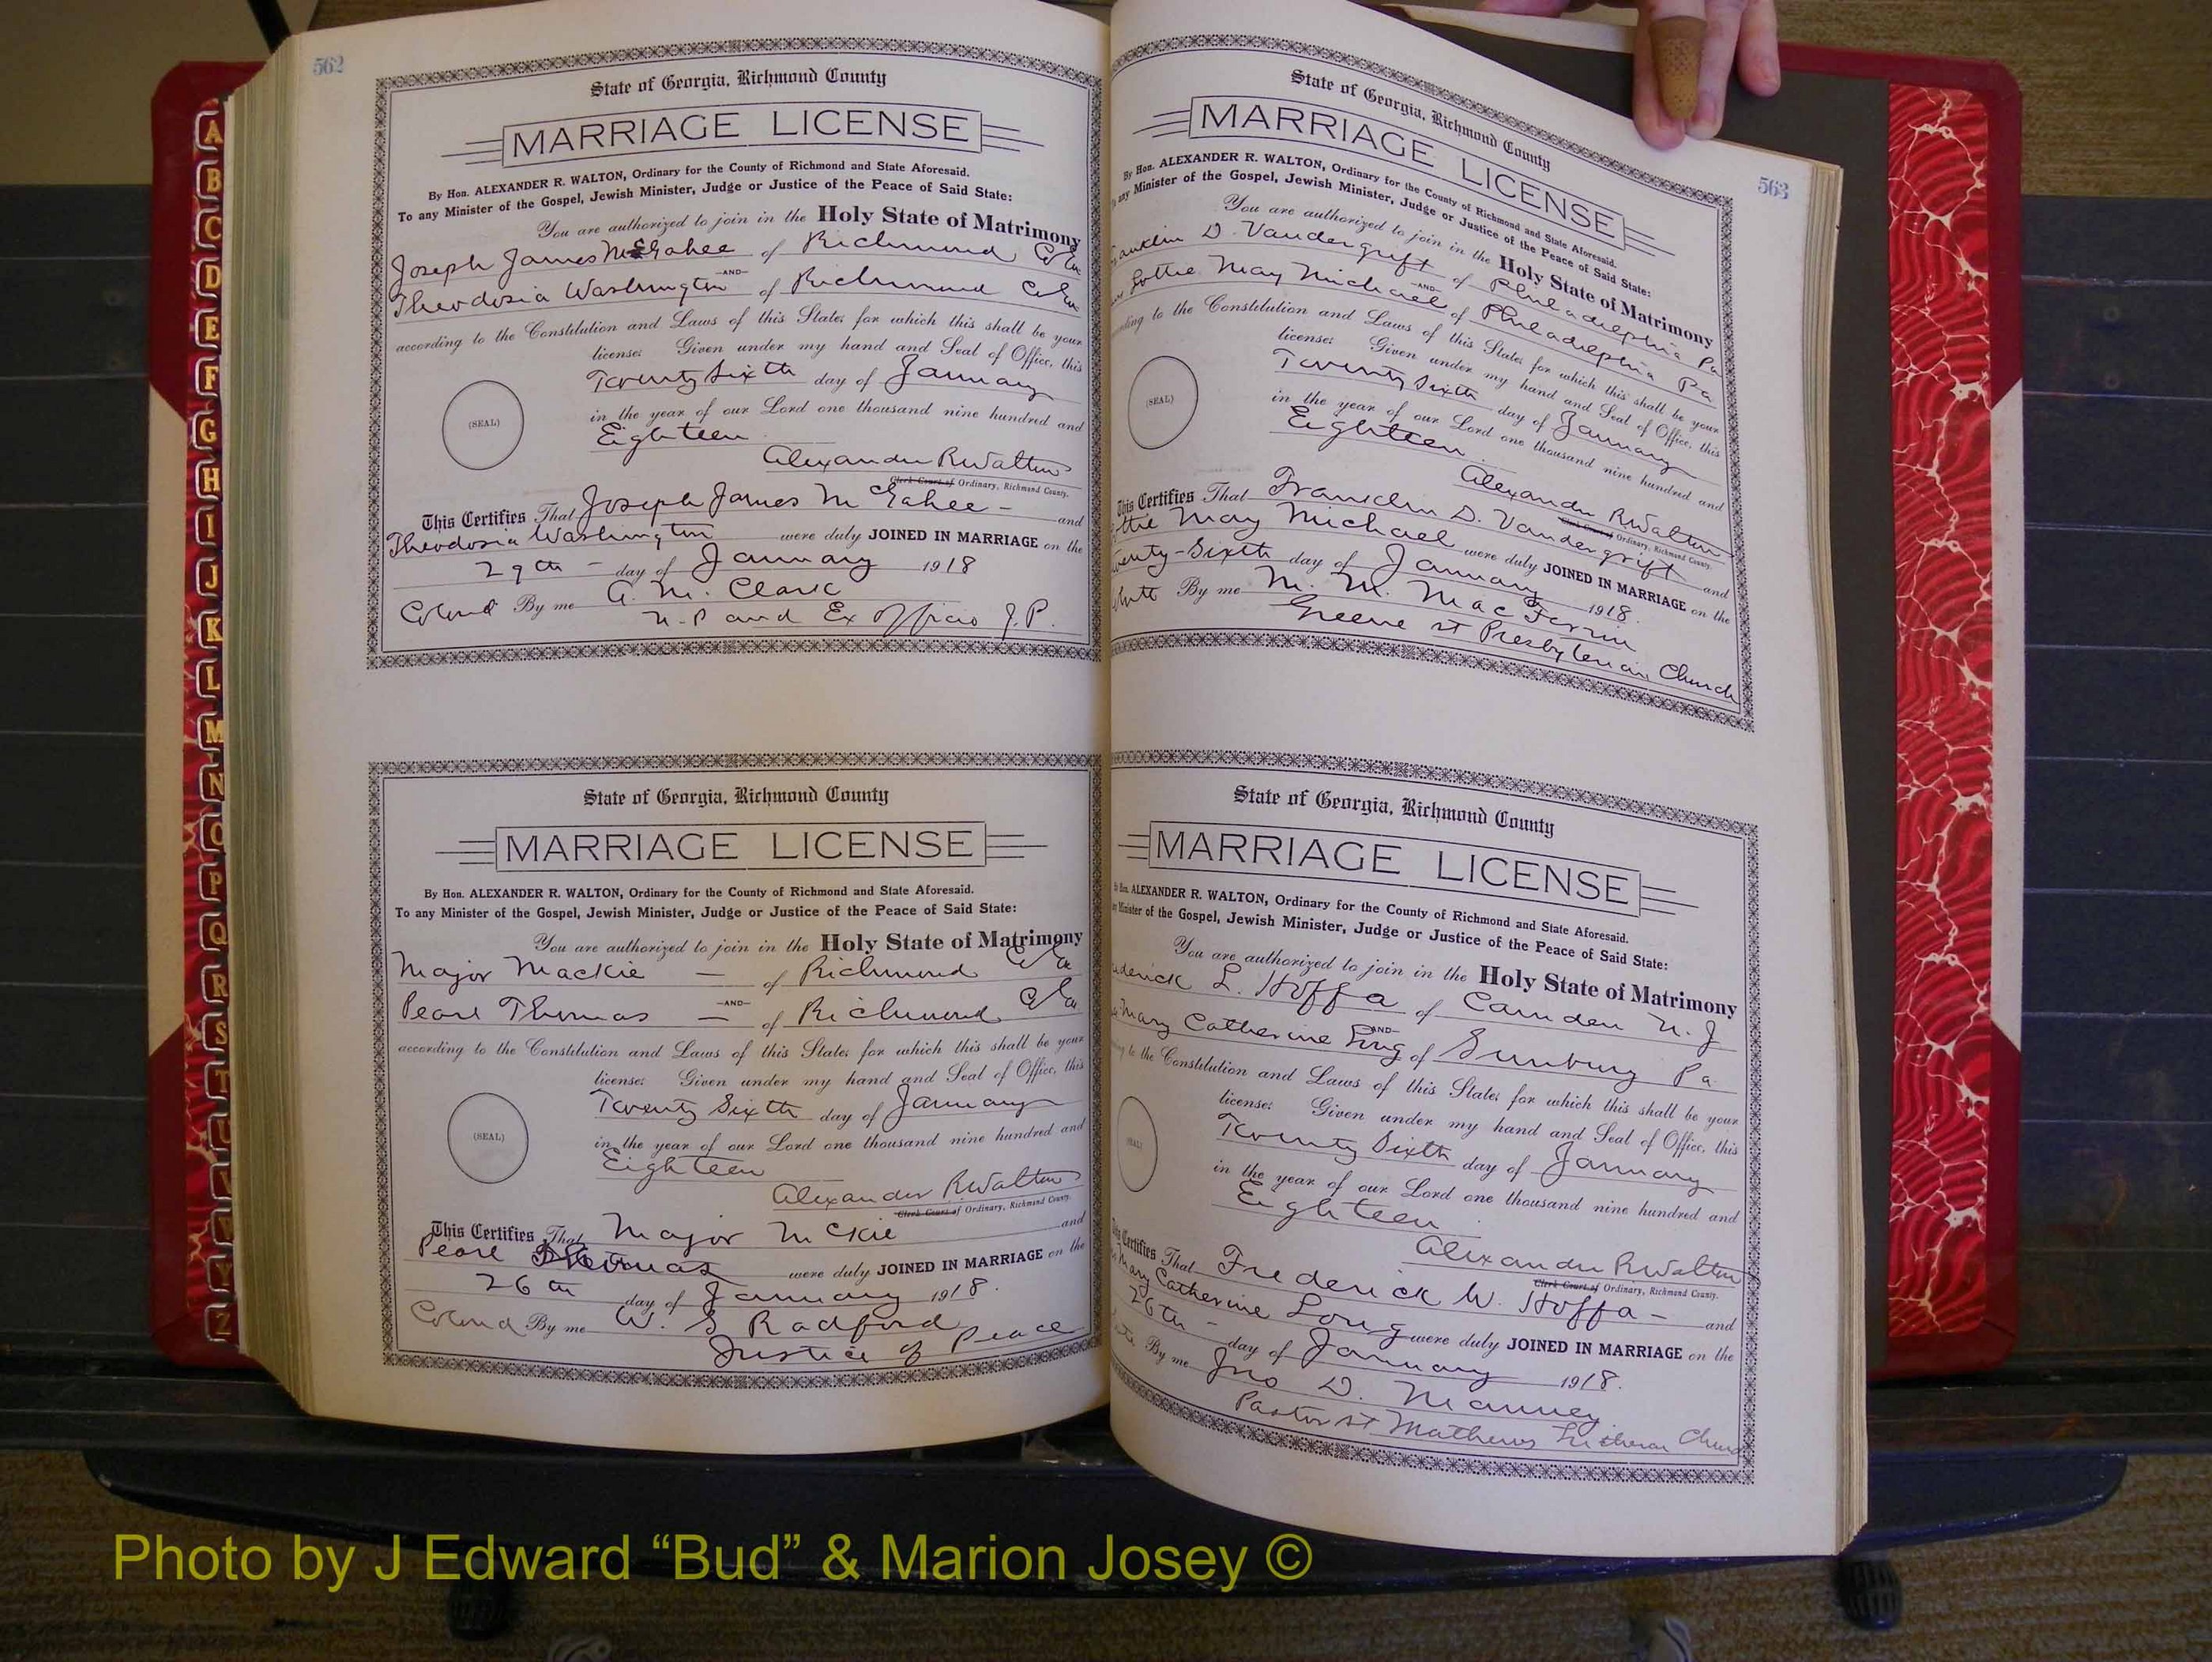 562
State of Georgia, Richmond County
MARRIAGE LICENSE
By Hon. ALEXANDER R. WALTON, Ordinary for the County of Richmond and State Aforesaid.
To any Minister of the Gospel, Jewish Minister, Judge or Justice of the Peace of Said State:
You are authorized to join in the Holy State of Matrimony
Joseph James McGahee of Richmond Co Ga
—AND—
Theodosia Washington of Richmond Co Ga
according to the Constitution and Laws of this State; for which this shall be your
license; Given under my hand and Seal of Office, this
Twenty Sixth day of January
(SEAL)
in the year of our Lord one thousand nine hundred and
Eighteen
Alexander R Walton
Clerk Court of Ordinary, Richmond County.
This Certifies That Joseph James McGahee - and
Theodosia Washington were duly JOINED IN MARRIAGE on the
29th - day of January 1918
Colored By me A. M. Clark
N. P and Ex Officio J. P.
State of Georgia, Richmond County
MARRIAGE LICENSE
By Hon. ALEXANDER R. WALTON, Ordinary for the County of Richmond and State Aforesaid.
To any Minister of the Gospel, Jewish Minister, Judge or Justice of the Peace of Said State:
You are authorized to join in the Holy State of Matrimony
Major Mackie — of Richmond Co Ga
—AND—
Pearl Thomas — of Richmond Co Ga
according to the Constitution and Laws of this State; for which this shall be your
license; Given under my hand and Seal of Office, this
Twenty Sixth day of January
(SEAL)
in the year of our Lord one thousand nine hundred and
Eighteen
Alexander R Walton
Clerk Court of Ordinary, Richmond County.
This Certifies That Major McKie and
Pearl Thomas were duly JOINED IN MARRIAGE on the
26th day of January 1918.
Colored By me W. S Radford
Justice of Peace
563
State of Georgia, Richmond County
MARRIAGE LICENSE
By Hon. ALEXANDER R. WALTON, Ordinary for the County of Richmond and State Aforesaid.
To any Minister of the Gospel, Jewish Minister, Judge or Justice of the Peace of Said State:
You are authorized to join in the Holy State of Matrimony
Franklin D. Vandergrift of Philadelphia Pa
—AND—
Lottie May Michael of Philadelphia Pa
according to the Constitution and Laws of this State; for which this shall be your
license; Given under my hand and Seal of Office, this
Twenty Sixth day of January
(SEAL)
in the year of our Lord one thousand nine hundred and
Eighteen
Alexander R Walton
Clerk Court of Ordinary, Richmond County.
This Certifies That Franklin D. Vandergrift and
Lottie May Michael were duly JOINED IN MARRIAGE on the
Twenty-Sixth day of January 1918.
White By me M. M. MacFerrin
Greene st Presbyterian Church
State of Georgia, Richmond County
MARRIAGE LICENSE
By Hon. ALEXANDER R. WALTON, Ordinary for the County of Richmond and State Aforesaid.
any Minister of the Gospel, Jewish Minister, Judge or Justice of the Peace of Said State:
You are authorized to join in the Holy State of Matrimony
Frederick L. Hoffa of Camden N. J
—AND—
Mary Catherine Long of Sunbury Pa
to the Constitution and Laws of this State; for which this shall be your
license; Given under my hand and Seal of Office, this
Twenty Sixth day of January
(SEAL)
in the year of our Lord one thousand nine hundred and
Eighteen
Alexander R Walton
Clerk Court of Ordinary, Richmond County.
Certifies That Frederick W. Hoffa - and
Mary Catherine Long were duly JOINED IN MARRIAGE on the
26th - day of January 1918.
By me Jno D. Manney
Pastor St Mathews Lutheran Church
A
B
C
D
E
F
G
H
I
J
K
L
M
N
O
P
Q
R
S
T
U
V
W
Y
Z
Photo by J Edward “Bud” & Marion Josey ©